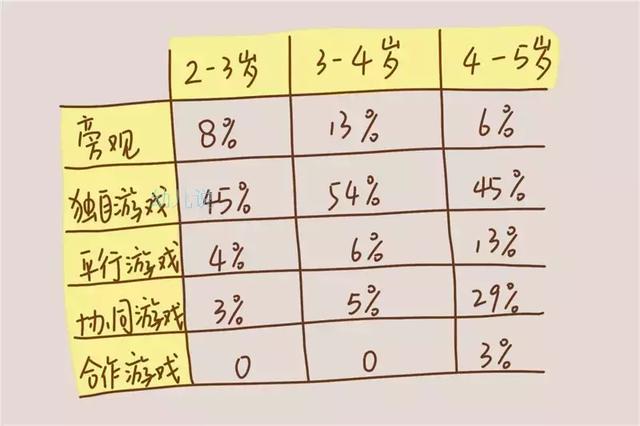 2-3岁 3-4岁 4-5岁
旁观 8% 13% 6%
独自游戏 45% 54% 45%
平行游戏 4% 6% 13%
协同游戏 3% 5% 29%
合作游戏 0 0 3%
幼儿说